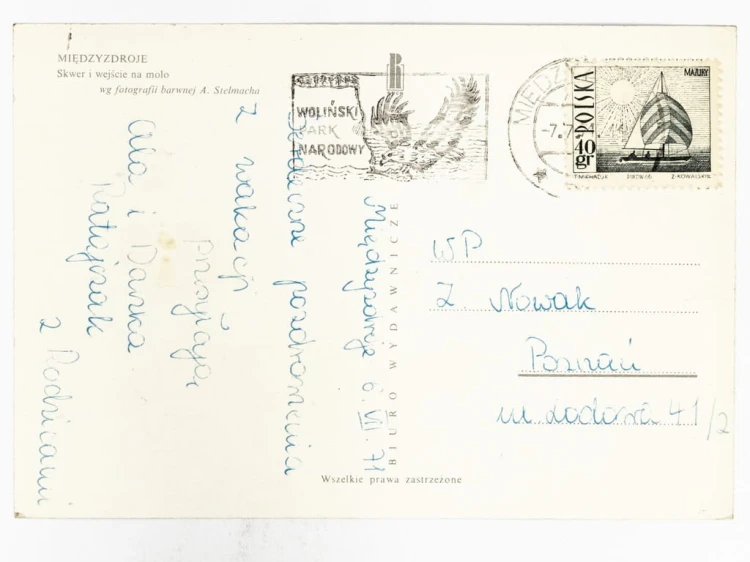 MIĘDZYZDROJE
Skwer i wejście na molo
wg fotografii barwnej A. Stelmacha
WOLIŃSKI
PARK
NARODOWY
MIĘDZ
-7.7
POLSKA
40
gr
MAZURY
T. MICHALUK
PWPW 66
Z. KOWALSKI
Międzyzdroje 6.VII.71
Serdeczne pozdrowienia
z wakacji
przysyłają
Ala i Danka
Ratajczak
z Rodzicami
BIURO WYDAWNICZE
R
WP
Z. Nowak
Poznań
ul. Lodowa 41/2
Wszelkie prawa zastrzeżone